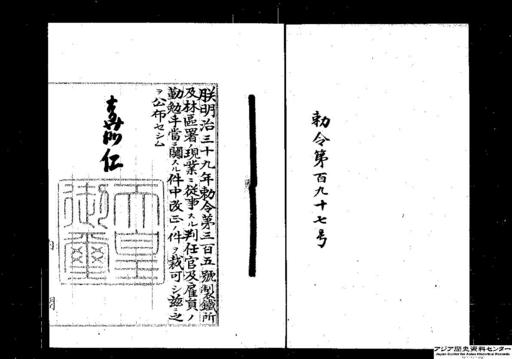 勅令第百九十七号
朕明治三十九年勅令第三百五號製鐵所
及林區署ノ現業ニ從事スル判任官及雇員ノ
勤勉手當ニ關スル件中改正ノ件ヲ裁可シ茲ニ之
ヲ公布セシム
嘉仁
天皇
御璽
内閣
アジア歴史資料センター
Japan Center for Asian Historical Records